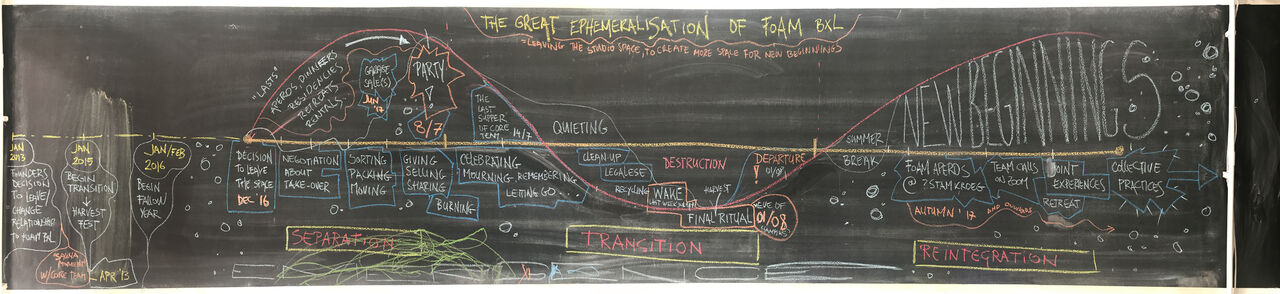 THE GREAT EPHEMERALISATION OF FOAM BXL
=LEAVING THE STUDIO SPACE, TO CREATE MORE SPACE FOR NEW BEGINNINGS
"LASTS"
APEROS, DINNEERS
RESIDENCIES
RETREATS
RENTALS
GARAGE
SALE(S)
JUN '17
PARTY
!
8/7
THE
LAST
SUPPER
OF CORE
TEAM 14/7
QUIETING
SUMMER
BREAK
NEW BEGINNINGS
JAN
2013
FOUNDERS
DECISION
TO LEAVE/
CHANGE
RELATIONSHIP
TO FOAM BXL
W/CORE TEAM
APR '13
JAN
2015
BEGIN
TRANSITION
HARVEST
FEST
JAN/FEB
2016
BEGIN
FALLOW
YEAR
DECISION
TO LEAVE
THE SPACE
DEC '16
NEGOTIATION
ABOUT
TAKE-OVER
SORTING
PACKING
MOVING
GIVING
SELLING
SHARING
BURNING
CELEBRATING
MOURNING-REMEMBERING
LETTING GO
CLEAN-UP
LEGALESE
RECYCLING
DESTRUCTION
WAKE
LAST WEEK
FINAL RITUAL
DEPARTURE
! 01/08
EVE OF
01/08
FOAM APEROS
@
AUTUMN '17
TEAM CALLS
ON ZOOM
AND ONWARDS
JOINT
EXPERIENCES
RETREAT
COLLECTIVE
PRACTICES
SEPARATION
TRANSITION
REINTEGRATION